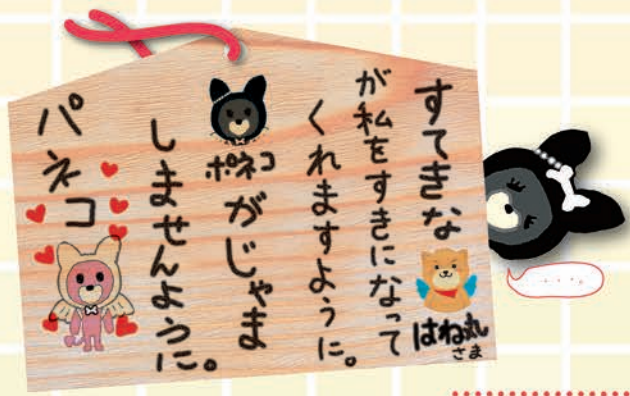 すてきな
はね丸
さま
が私をすきになって
くれますように。
ポネコ
がじゃま
しませんように。
パネコ
....